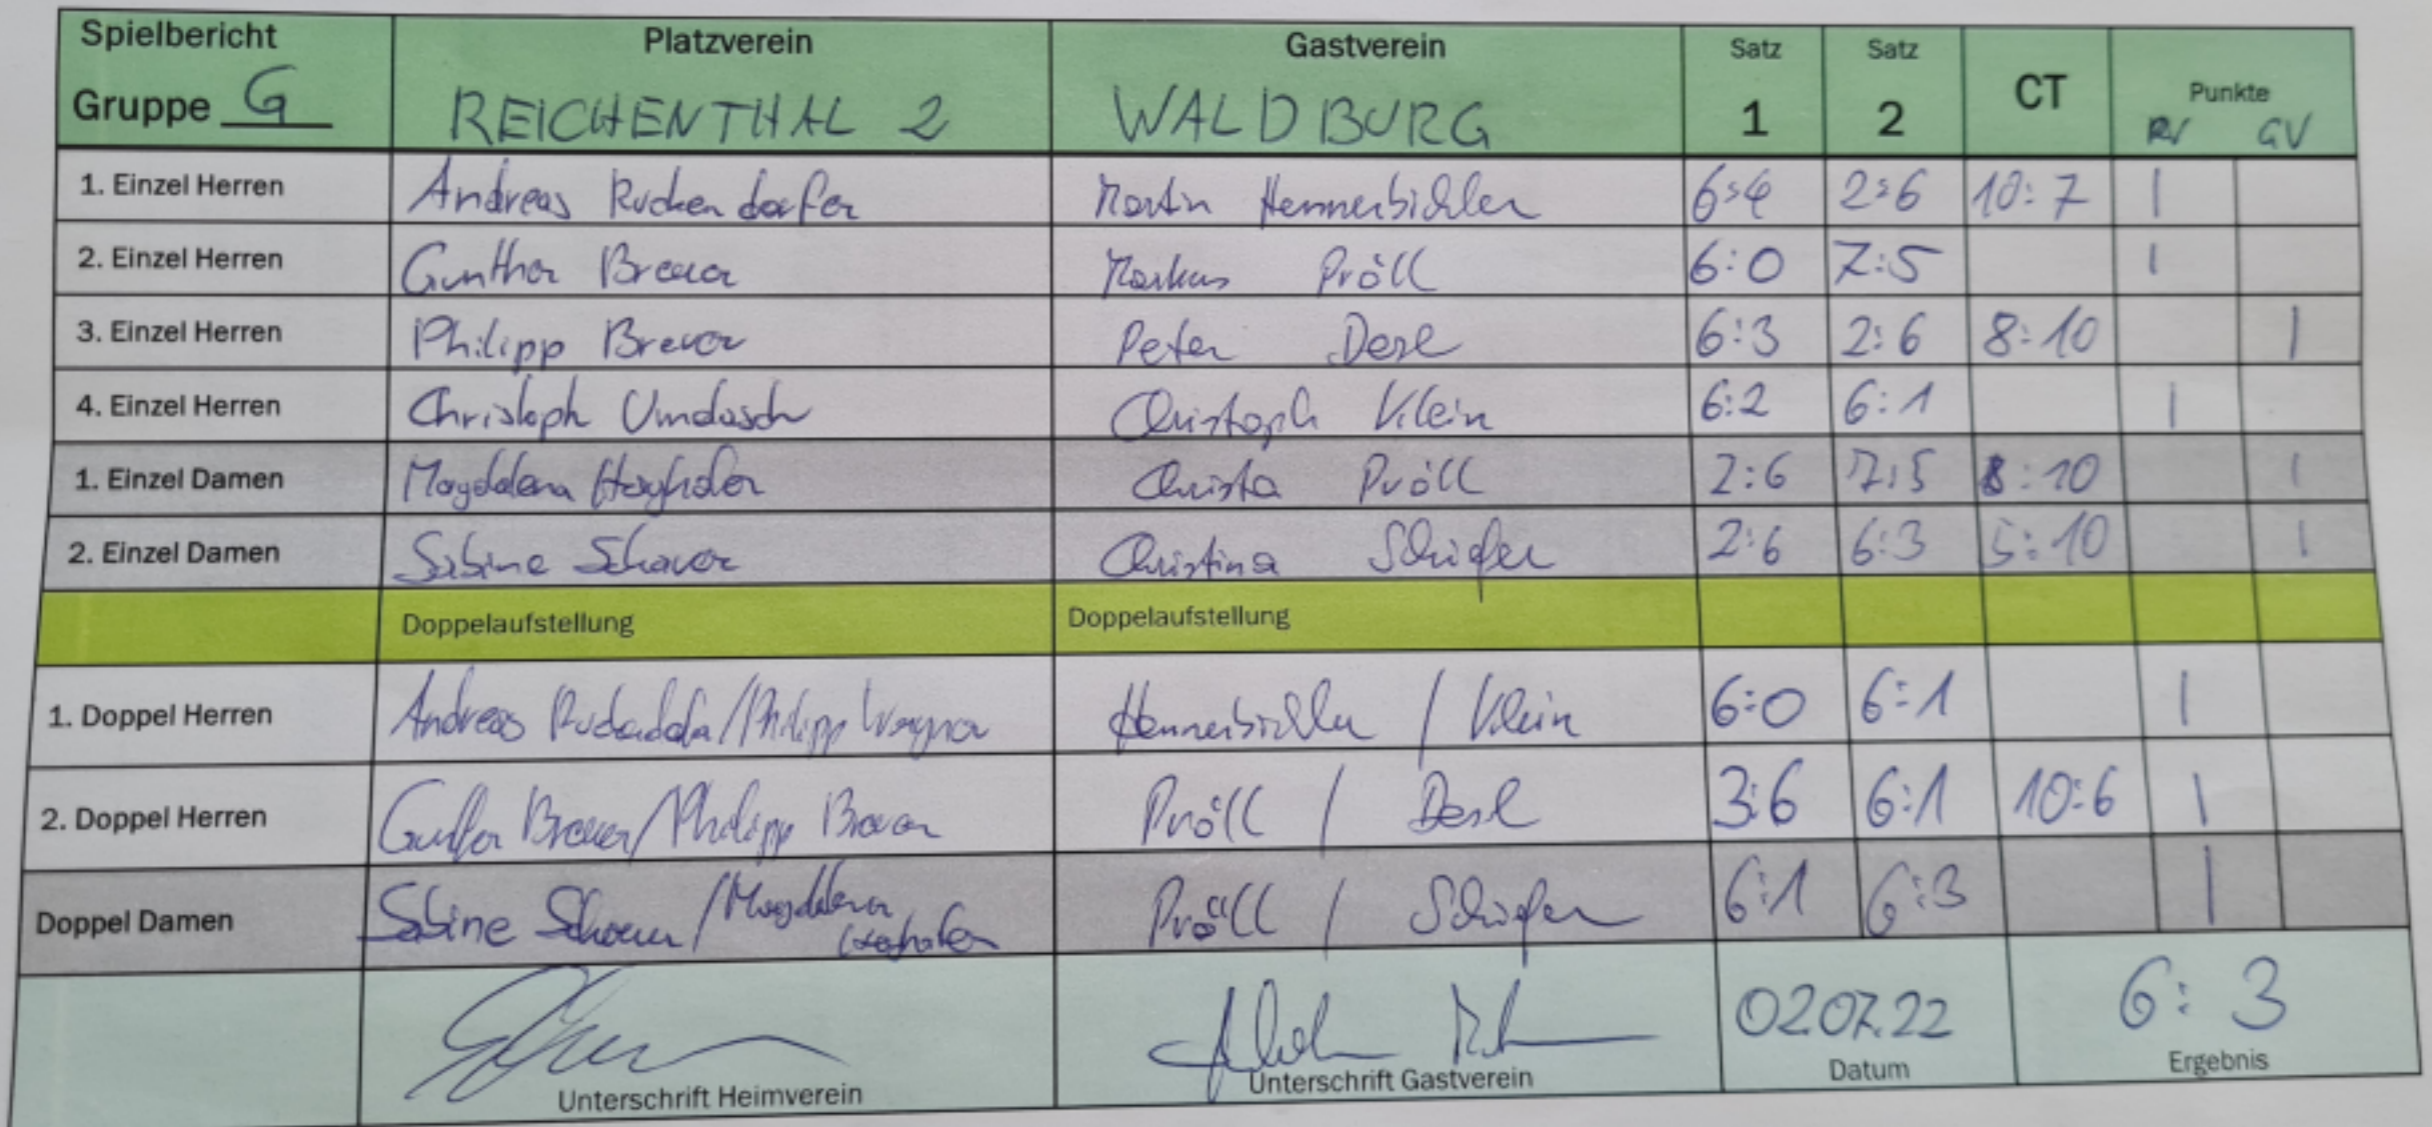 Spielbericht Platzverein Gastverein Satz Satz CT Punkte
Gruppe G REICHENTHAL 2 WALDBURG 1 2 PV GV
1. Einzel Herren Andreas Ruckendorfer Martin Hennerbichler 6:4 2:6 10:7 1
2. Einzel Herren Gunther Breuer Markus Pröll 6:0 7:5 1
3. Einzel Herren Philipp Breuer Peter Desl 6:3 2:6 8:10 1
4. Einzel Herren Christoph Umdasch Christoph Klein 6:2 6:1 1
1. Einzel Damen Magdalena Christa Pröll 2:6 7:5 8:10 1
2. Einzel Damen Sabine Schauer Christina Schiefer 2:6 6:3 5:10 1
Doppelaufstellung Doppelaufstellung
1. Doppel Herren Andreas /Philipp Wagner Hennerbichler / Klein 6:0 6:1 1
2. Doppel Herren Gunther Breuer/Philipp Breuer Pröll / Desl 3:6 6:1 10:6 1
Doppel Damen Sabine Schauer/Magdalena Pröll / Schiefer 6:1 6:3 1
02.07.22 6:3
Unterschrift Heimverein Unterschrift Gastverein Datum Ergebnis